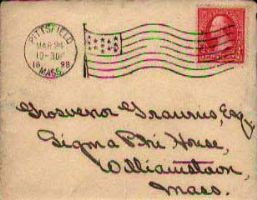 PITTSFIELD
10-30
18 98
MASS.
Grosvenor Esq
Sigma Phi House,
Williamstown,
Mass.